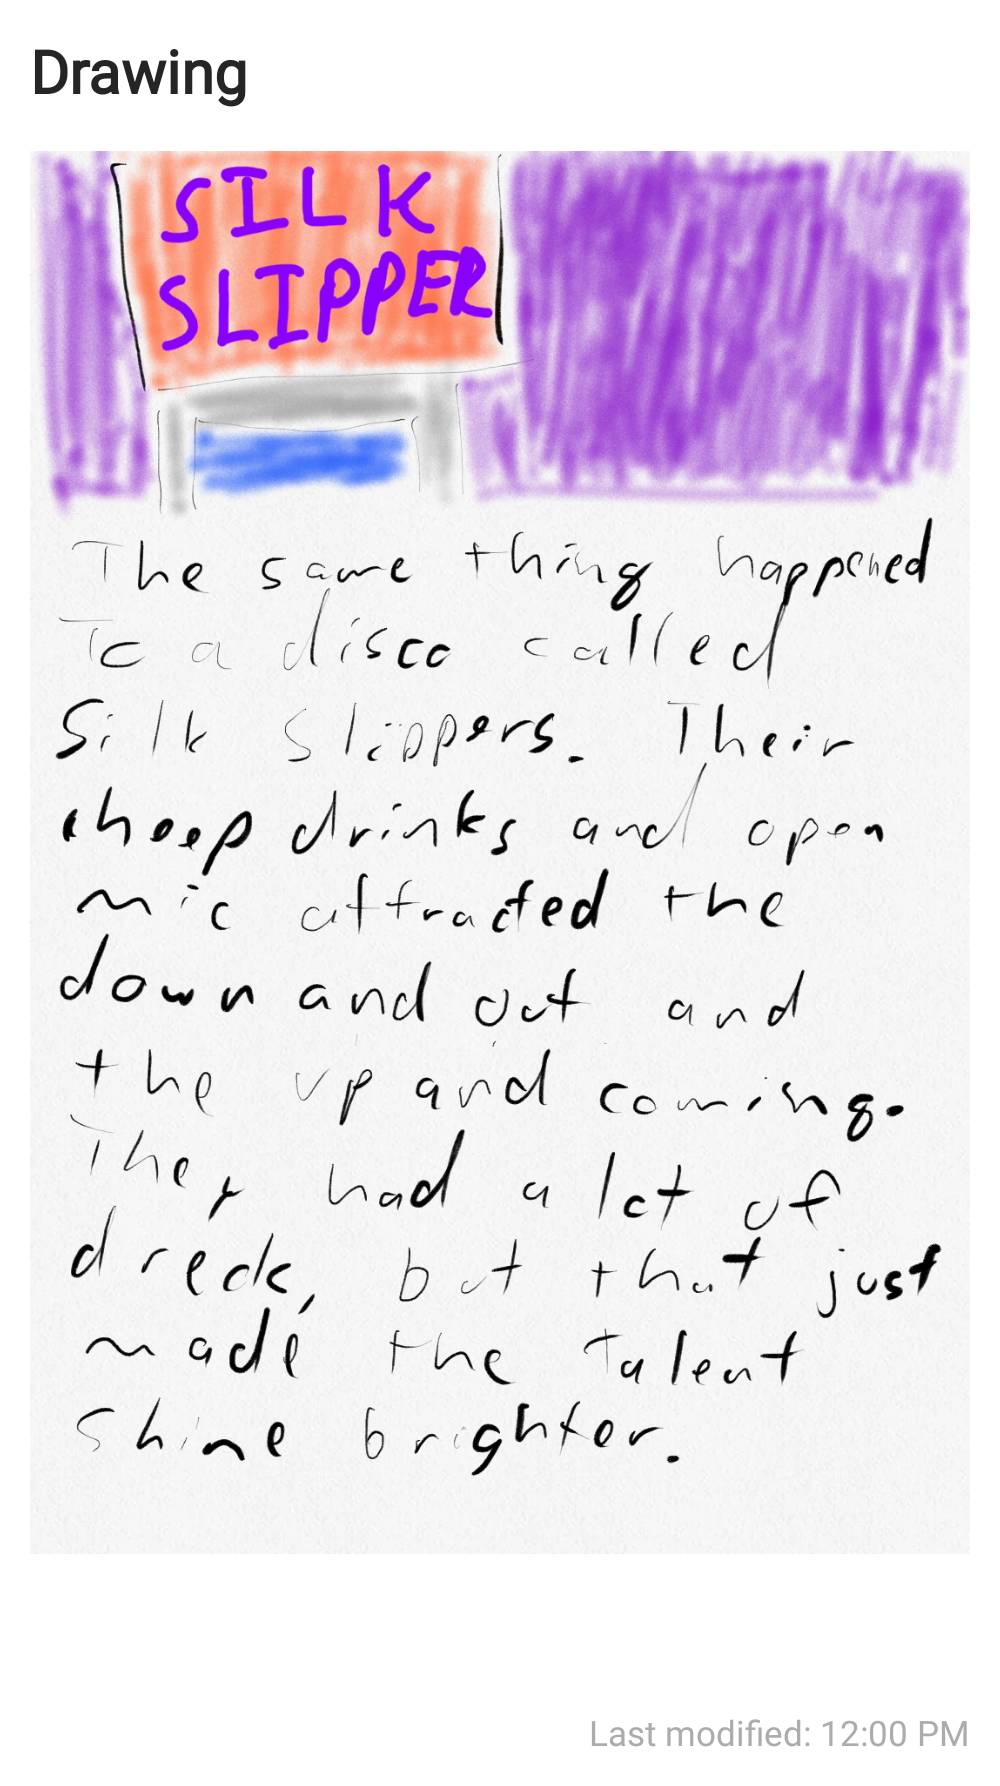 Drawing
SILK
SLIPPER
The same thing happened
To a disco called
Silk Slippers. Their
cheep drinks and open
mic attracted the
down and out and
the up and coming.
They had a lot of
dreck, but that just
made the Talent
shine brighter.
Last modified: 12:00 PM